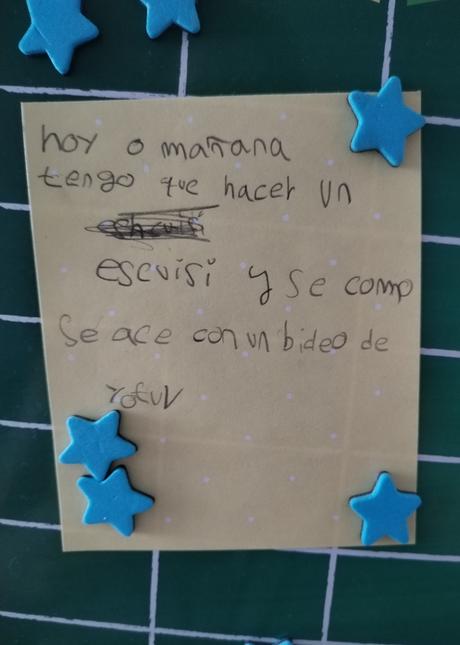 hoy o mañana
tengo que hacer un
escuisi y se como
se ace con un bideo de
Yotuv